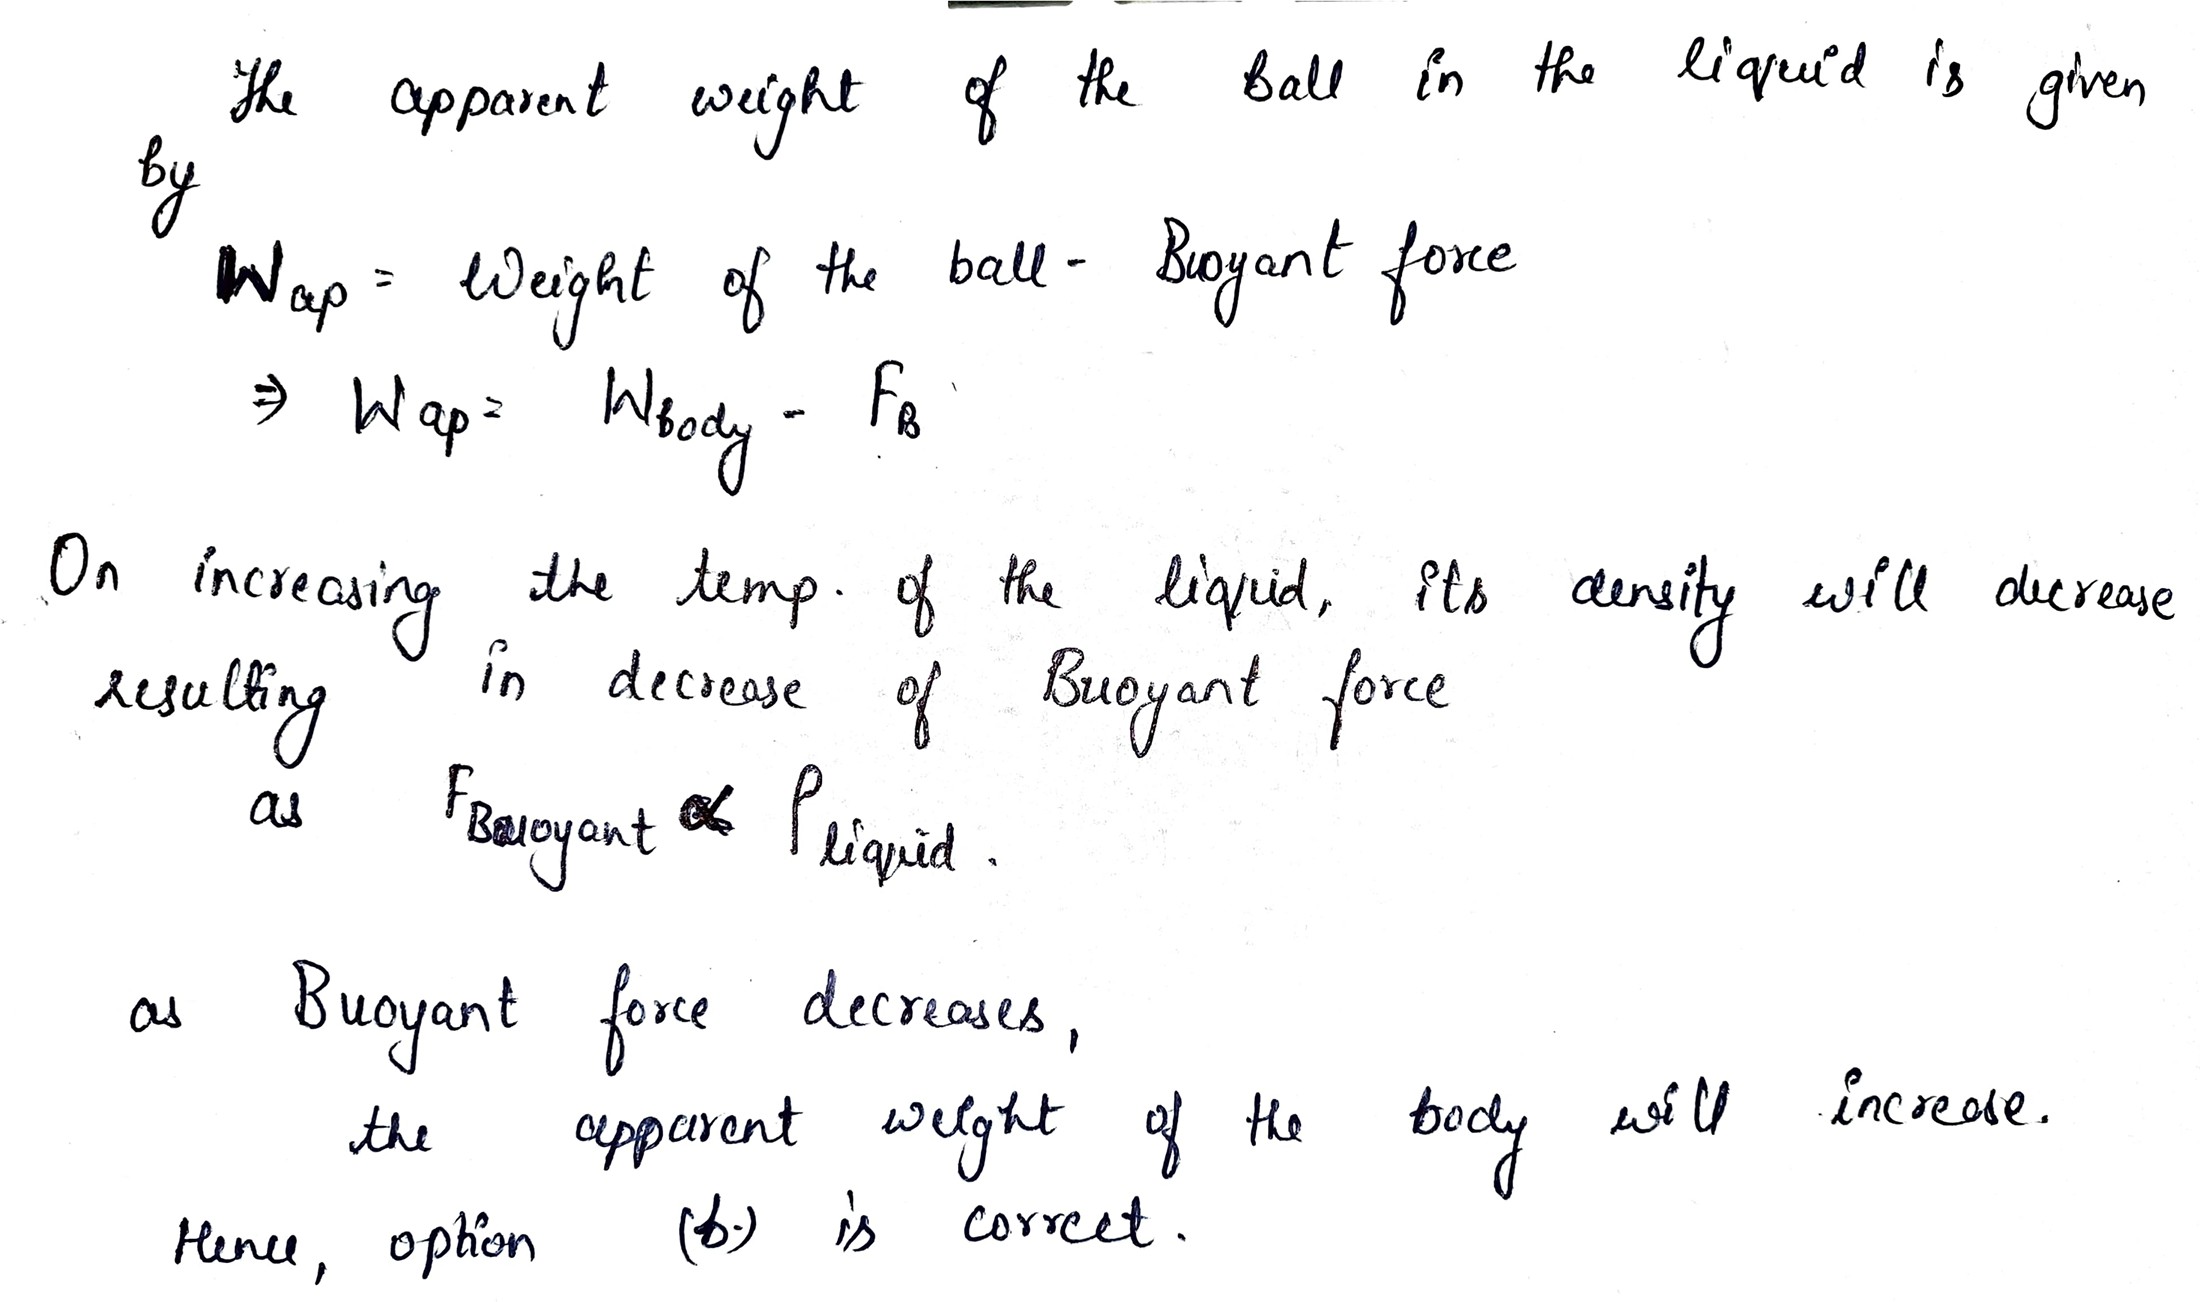 The apparent weight of the ball in the liquid is given
by
Wap = Weight of the ball - Buoyant force
⇒ Wap = Wbody - FB
On increasing the temp. of the liquid, its density will decrease
resulting in decrease of Buoyant force
as FBuoyant ∝ ρliquid.
as Buoyant force decreases,
the apparent weight of the body will increase.
Hence, option (b.) is correct.